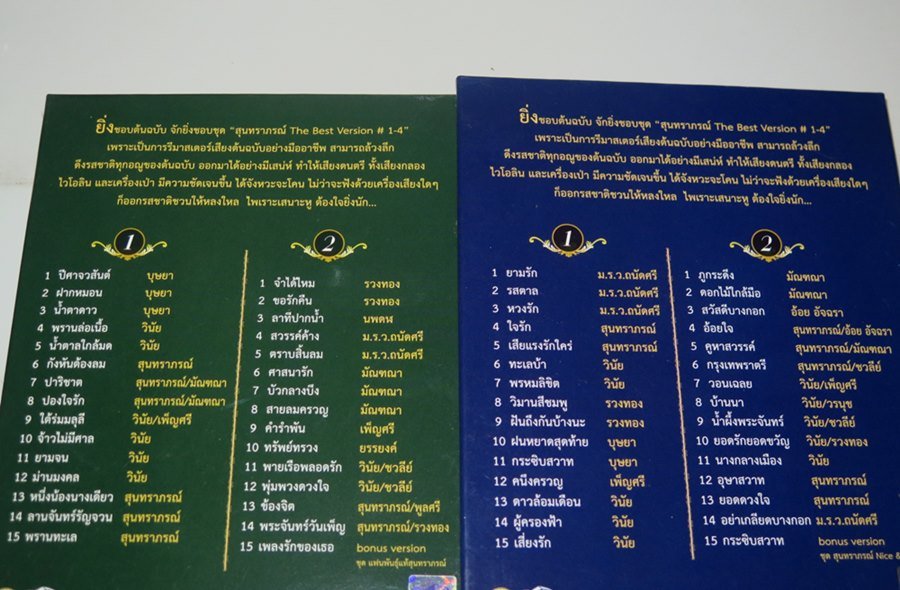 ยิ่งชอบต้นฉบับ จักยิ่งชอบชุด "สุนทราภรณ์ The Best Version # 1-4"
เพราะเป็นการรีมาสเตอร์เสียงต้นฉบับอย่างมืออาชีพ สามารถล้วงลึก
ดึงรสชาติทุกอณูของต้นฉบับ ออกมาได้อย่างมีเสน่ห์ ทำให้เสียงดนตรี ทั้งเสียงกลอง
ไวโอลิน และเครื่องเป่า มีความชัดเจนขึ้น ได้จังหวะจะโคน ไม่ว่าจะฟังด้วยเครื่องเสียงใดๆ
ก็ออกรสชาติชวนให้หลงใหล ไพเราะเสนาะหู ต้องใจยิ่งนัก...
1
1 ปีศาจวสันต์ บุษยา
2 ฝากหมอน บุษยา
3 น้ำตาดาว บุษยา
4 พรานล่อเนื้อ วินัย
5 น้ำตาลใกล้มด วินัย
6 กังหันต้องลม สุนทราภรณ์
7 ปาริชาต สุนทราภรณ์/มัณฑนา
8 ปองใจรัก สุนทราภรณ์/มัณฑนา
9 ใต้ร่มมลุลี วินัย/เพ็ญศรี
10 จ้าวไม่มีศาล วินัย
11 ยามจน วินัย
12 ม่านมงคล วินัย
13 หนึ่งน้องนางเดียว สุนทราภรณ์
14 ลานจันทร์รัญจวน สุนทราภรณ์
15 พรานทะเล สุนทราภรณ์
2
1 จำได้ไหม รวงทอง
2 ขอรักคืน รวงทอง
3 ลาทีปากน้ำ นพดฬ
4 สวรรค์ค้าง ม.ร.ว.ถนัดศรี
5 ตราบสิ้นลม ม.ร.ว.ถนัดศรี
6 ศาสนารัก มัณฑนา
7 บัวกลางบึง มัณฑนา
8 สายลมครวญ มัณฑนา
9 คำรำพัน เพ็ญศรี
10 ทรัพย์ทรวง ยรรยงค์
11 พายเรือพลอดรัก วินัย/ชวลีย์
12 พุ่มพวงดวงใจ วินัย/ชวลีย์
13 ข้องจิต สุนทราภรณ์/พูลศรี
14 พระจันทร์วันเพ็ญ สุนทราภรณ์/รวงทอง
15 เพลงรักของเธอ bonus version
ชุด แฟนพันธุ์แท้สุนทราภรณ์
ยิ่งชอบต้นฉบับ จักยิ่งชอบชุด "สุนทราภรณ์ The Best Version # 1-4"
เพราะเป็นการรีมาสเตอร์เสียงต้นฉบับอย่างมืออาชีพ สามารถล้วงลึก
ดึงรสชาติทุกอณูของต้นฉบับ ออกมาได้อย่างมีเสน่ห์ ทำให้เสียงดนตรี ทั้งเสียงกลอง
ไวโอลิน และเครื่องเป่า มีความชัดเจนขึ้น ได้จังหวะจะโคน ไม่ว่าจะฟังด้วยเครื่องเสียงใดๆ
ก็ออกรสชาติชวนให้หลงใหล ไพเราะเสนาะหู ต้องใจยิ่งนัก...
1
1 ยามรัก ม.ร.ว.ถนัดศรี
2 รสตาล ม.ร.ว.ถนัดศรี
3 หวงรัก ม.ร.ว.ถนัดศรี
4 ใจรัก สุนทราภรณ์
5 เสียแรงรักใคร่ สุนทราภรณ์
6 ทะเลบ้า วินัย
7 พรหมลิขิต วินัย
8 วิมานสีชมพู รวงทอง
9 ฝันถึงกันบ้างนะ รวงทอง
10 ฝนหยาดสุดท้าย บุษยา
11 กระซิบสวาท บุษยา
12 คนึงครวญ เพ็ญศรี
13 ดาวล้อมเดือน วินัย
14 ผู้ครองฟ้า วินัย
15 เสี่ยงรัก วินัย
2
1 ภูกระดึง มัณฑนา
2 ดอกไม้ใกล้มือ มัณฑนา
3 สวัสดีบางกอก อ้อย อัจฉรา
4 อ้อยใจ สุนทราภรณ์/อ้อย อัจฉรา
5 คูหาสวรรค์ สุนทราภรณ์/มัณฑนา
6 กรุงเทพราตรี สุนทราภรณ์/ชวลีย์
7 วอนเฉลย วินัย/เพ็ญศรี
8 บ้านนา วินัย/วรนุช
9 น้ำผึ้งพระจันทร์ วินัย/ชวลีย์
10 ยอดรักยอดขวัญ วินัย/รวงทอง
11 นางกลางเมือง วินัย
12 อุษาสวาท สุนทราภรณ์
13 ยอดดวงใจ สุนทราภรณ์
14 อย่าเกลียดบางกอก ม.ร.ว.ถนัดศรี
15 กระซิบสวาท bonus version
ชุด สุนทราภรณ์ Nice &